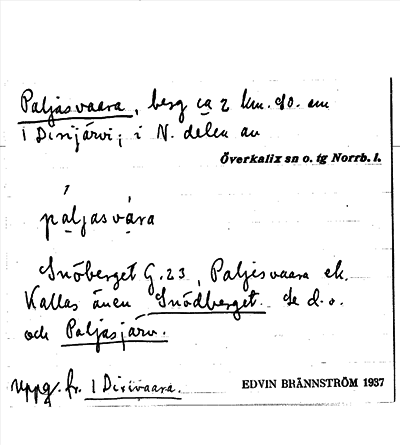 Paljasvaara, berg ca 2 km. so. om
1 Dirijärvi; i N. delen av
Överkalix sn o. tg Norrb. l.
páljasvàra
Snöberget G.23, Paljesvaara ek.
Kallas även Snödberget. Se d.o.
och Paljasjärv.
Uppg. fr. 1 Dirivaara.
EDVIN BRÄNNSTRÖM 1937